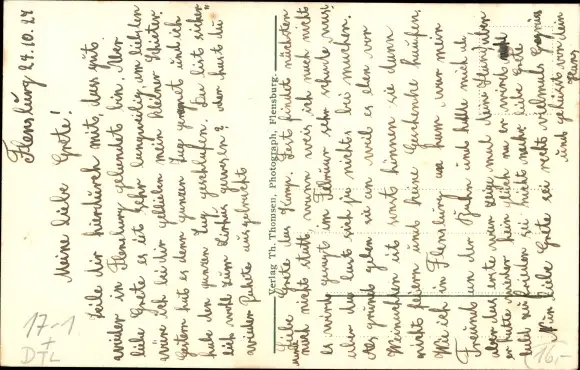 Flensburg 24.10.24
Meine liebe Grete!
Teile dir hierdurch mit, dass gut
wieder in Flensburg gelandet bin. Aber
liebe Grete es ist sehr langweilig am liebsten
wäre ich bei dir geblieben mein kleiner
Gestern hab es den ganzen Tag geregnet und ich
habe den ganzen Tag geschlafen. Du bist sicher
doch wohl zum Zirkus gewesen? oder hast du
wieder Pakete ausgebracht
Verlag Th. Thomsen, Photograph, Flensburg.
Liebe Grete das Komp. Fest findet nächsten
noch nicht statt, wann weis ich noch nicht
es wird gesagt im Februar sehr schade
aber da lässt sich ja nichts bei machen.
geben sie an weil es eben vor
Weinachten ist sonst können sie dann
nicht feiern und keine Geschenke kaufen.
Wie ich in Flensburg an kam war mein
Freund an der Bahn und hollte mich
aber das erste war zeige mal deine Hand
er hatte wieder kein Glück na er wird
bald zufrieden sei nicht mehr liebe Grete
Nun liebe Grete sei recht vielmals
und geküsst von dein
Hans
17-1
+
D+L
16,-